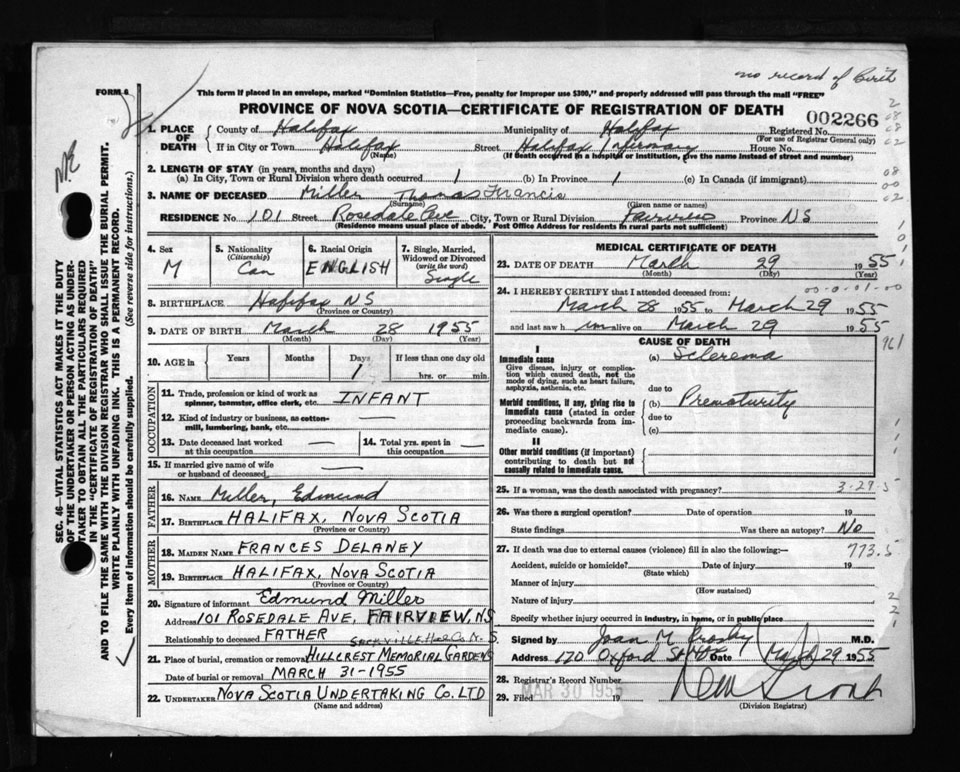 no record of Birth
FORM 8
This form if placed in an envelope, marked "Dominion Statistics—Free, penalty for improper use $300," and properly addressed will pass through the mail "FREE"
PROVINCE OF NOVA SCOTIA—CERTIFICATE OF REGISTRATION OF DEATH
002266
1. PLACE OF DEATH
County of Halifax Municipality of Halifax Registered No.
(For use of Registrar General only)
If in City or Town Halifax Street Halifax Infirmary House No.
(Name) (If death occurred in a hospital or institution, give the name instead of street and number)
2. LENGTH OF STAY (in years, months and days)
(a) In City, Town or Rural Division where death occurred 1 (b) In Province 1 (c) In Canada (if immigrant)
3. NAME OF DECEASED Miller Thomas Francis
(Surname) (Given name or names)
RESIDENCE No. 101 Street Rosedale Ave City, Town or Rural Division Fairview Province NS
(Residence means usual place of abode. Post Office Address for residents in rural parts not sufficient)
4. Sex M
5. Nationality (Citizenship) Can
6. Racial Origin ENGLISH
7. Single, Married, Widowed or Divorced (write the word) Single
8. BIRTHPLACE Halifax NS
(Province or Country)
9. DATE OF BIRTH March 28 1955
(Month) (Day) (Year)
10. AGE in Years Months Days 1 If less than one day old hrs. or min.
OCCUPATION
11. Trade, profession or kind of work as spinner, teamster, office clerk, etc. INFANT
12. Kind of industry or business, as cotton-mill, lumbering, bank, etc. —
13. Date deceased last worked at this occupation —
14. Total yrs. spent in this occupation —
15. If married give name of wife or husband of deceased —
FATHER
16. NAME Miller, Edmund
17. BIRTHPLACE HALIFAX, NOVA SCOTIA
(Province or Country)
MOTHER
18. MAIDEN NAME FRANCES DELANEY
19. BIRTHPLACE HALIFAX, NOVA SCOTIA
(Province or Country)
20. Signature of informant Edmund Miller
Address 101 ROSEDALE AVE, FAIRVIEW, N.S.
Relationship to deceased FATHER
SACKVILLE Hal. Co. N.S.
21. Place of burial, cremation or removal HILLCREST MEMORIAL GARDENS
Date of burial or removal MARCH 31-1955
22. UNDERTAKER NOVA SCOTIA UNDERTAKING CO. LTD
(Name and address)
MEDICAL CERTIFICATE OF DEATH
23. DATE OF DEATH March 29 1955
(Month) (Day) (Year)
24. I HEREBY CERTIFY that I attended deceased from: 00-0-01-00
March 28 1955 to March 29 1955
and last saw him alive on March 29 1955
CAUSE OF DEATH
961
I
Immediate cause
Give disease, injury or complication which caused death, not the mode of dying, such as heart failure, asphyxia, asthenia, etc.
(a) Sclerema
due to
Morbid conditions, if any, giving rise to immediate cause (stated in order proceeding backwards from immediate cause).
(b) Prematurity
due to
(c)
II
Other morbid conditions (if important) contributing to death but not causally related to immediate cause.
25. If a woman, was the death associated with pregnancy? 3-29-5
26. Was there a surgical operation? Date of operation 19
State findings Was there an autopsy? No
27. If death was due to external causes (violence) fill in also the following:— 773.5
Accident, suicide or homicide? Date of injury 19
(State which)
Manner of injury
(How sustained)
Nature of injury
Specify whether injury occurred in industry, in home, or in public place
Signed by Joan M Crosby M.D.
Address 170 Oxford St Hfx Date Mar 29 1955
28. Registrar's Record Number
MAR 30 1955
29. Filed 19
(Division Registrar)
SEC. 46—VITAL STATISTICS ACT MAKES IT THE DUTY
OF THE UNDERTAKER OR PERSON ACTING AS UNDER-
TAKER TO OBTAIN ALL THE PARTICULARS REQUIRED
IN THE "CERTIFICATE OF REGISTRATION OF DEATH"
AND TO FILE THE SAME WITH THE DIVISION REGISTRAR WHO SHALL ISSUE THE BURIAL PERMIT.
WRITE PLAINLY WITH UNFADING INK. THIS IS A PERMANENT RECORD.
Every item of information should be carefully supplied. (See reverse side for instructions.)